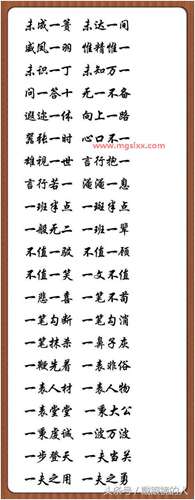 未成一篑 未达一间
威凤一羽 惟精惟一
未识一丁 未知万一
问一答十 无一不备
遐迩一体 向上一路
嚣张一时 心口不一
www.mgslxx.com
雄视一世 言行抱一
言行若一 淹淹一息
一班半点 一斑半点
一般无二 一班一辈
不值一驳 不值一顾
不值一笑 一文不值
一悲一喜 一笔不苟
一笔勾断 一笔勾消
一笔抹杀 一鼻子灰
一鞭先着 一表非俗
一表人材 一表人物
一表堂堂 一秉大公
一秉虔诚 一波万波
一步登天 一夫当关
一夫之用 一夫之勇
头条号